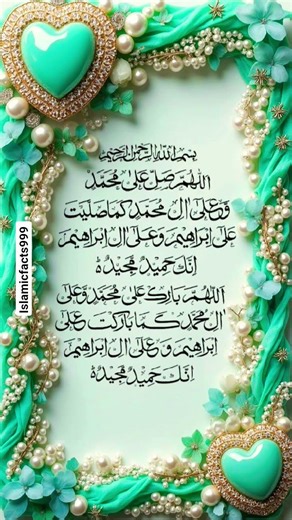 بسم الله الرحمن الرحيم
اللهم صل على محمد
وعلى ال محمد كما صليت
على ابراهيم وعلى ال ابراهيم
انك حميد مجيد
اللهم بارك على محمد وعلى
ال محمد كما باركت على
ابراهيم وعلى ال ابراهيم
انك حميد مجيد
Islamicfacts999